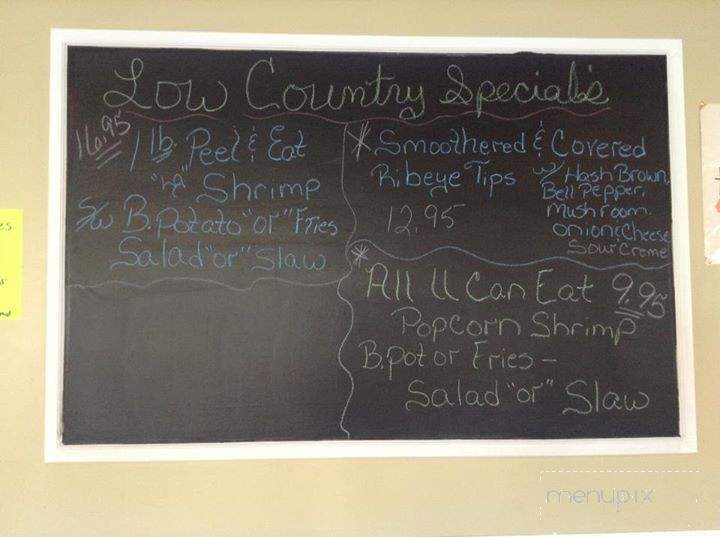 Low Country Special's
16.95
1 lb. Peel & Eat
Shrimp
S/w B. Potato "or" Fries
Salad "or" Slaw
* Smoothered & Covered
Ribeye Tips w/ Hash Brown,
Bell Pepper,
mushroom
onion & Cheese
Sour Creme
12.95
* All U Can Eat 9.95
Popcorn Shrimp
B.pot or Fries -
Salad "or" Slaw
es
nd
menupix